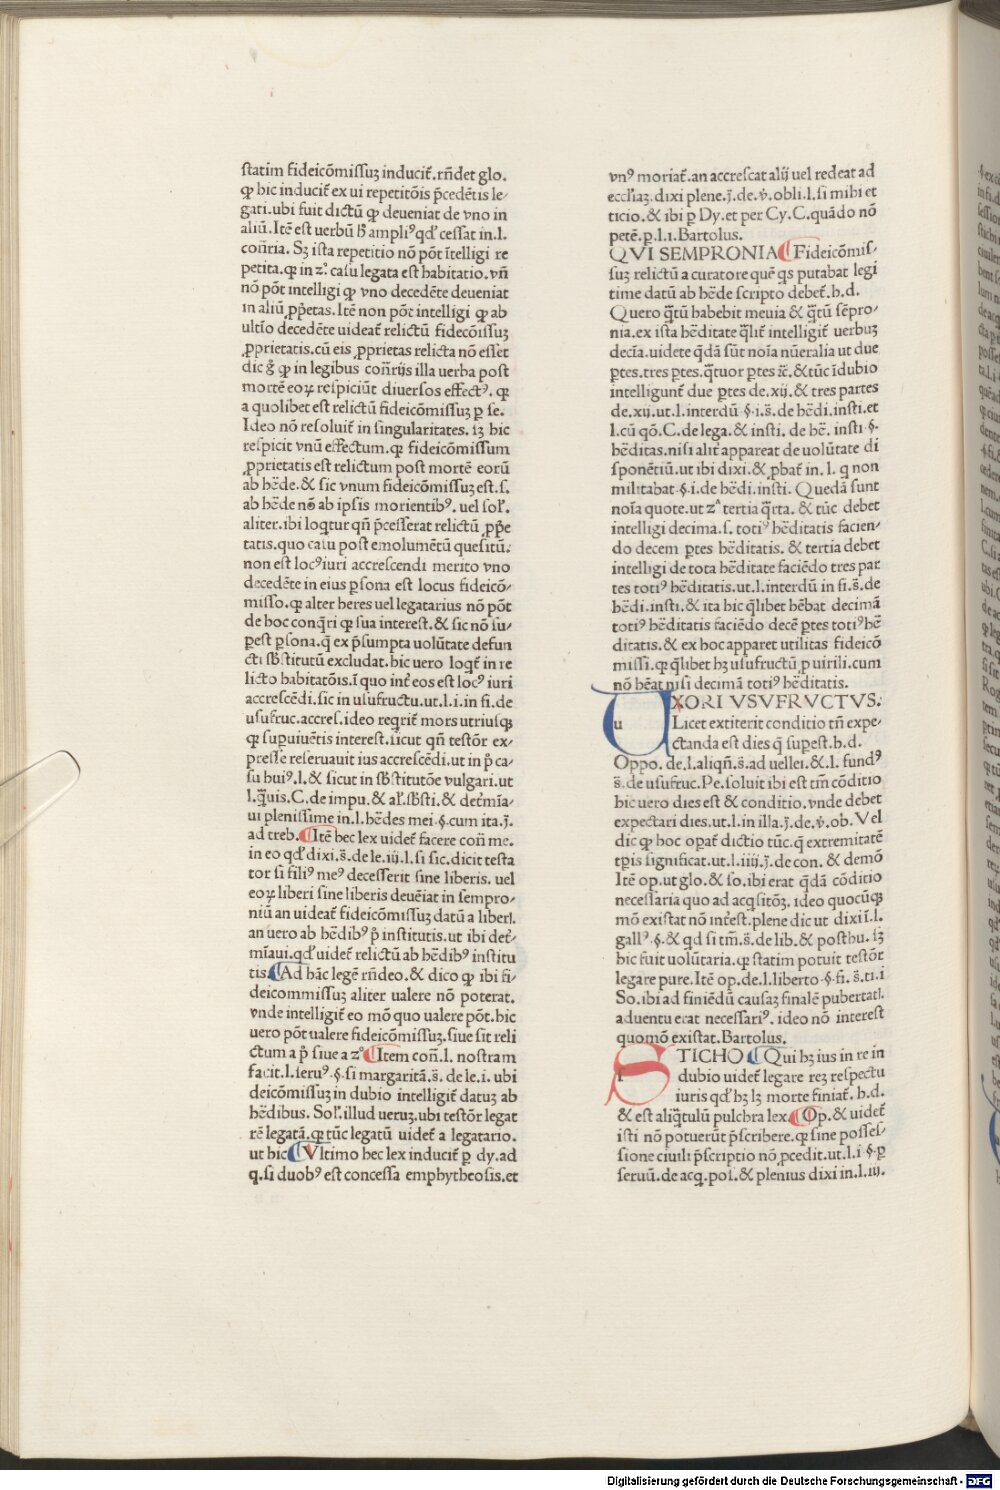 statim fideicõmissuʒ inducit᷑.rñdet glo.
ꝙ hic inducit᷑ ex ui repetitõis p̃cedẽtis le⸗
gati.ubi fuit dictũ ꝙ deueniat de vno in
aliũ.Itẽ est uerbũ ħ ampliꝰqđ cessat in.l.
coñria. Sʒ ista repetitio nõ põt ĩtelligi re
petita.ꝙ in zͦ. casu legata est habitatio.vñ
nõ põt intelligi ꝙ vno decedẽte deueniat
in aliũ ꝓp̃etas.Itẽ non põt intelligi ꝙ ab
ultĩo decedẽte uideat᷑ relictũ fidecõissuʒ
ꝓprietatis.cũ eis ꝓprietas relicta nõ esset
dic g̊ ꝙ in legibus coñrijs illa uerba post
mortẽ eoꝝ respiciũt diuersos effectꝰ. ꝙ
a quolibet est relictũ fideicõmissuʒ ꝑ se.
Ideo nõ resoluit᷑ in singularitates. sʒ hic
respicit vnũ effectum.ꝙ fideicõmissum
ꝓprietatis est relictum post mortẽ eorũ
ab hẽde.& sic vnum fideicõmissuʒ est.s.
ab hẽde nõ ab ipsis morientibꝰ. uel sol᷑.
aliter.ibi loqtur qñ p̃cesserat relictũ ꝓp̃e
tatis.quo casu post emolumẽtũ quesitũ:
non est locꝰiuri accrescendi merito vno
decedẽte in eius ꝑsona est locus fideicõ⸗
misso.ꝙ alter heres uel legatarius nõ põt
de hoc conq̃ri ꝙ sua interest.& sic nõ su⸗
ꝑest ꝑsona.q̃ ex p̃sumpta uolũtate defun
cti sb̃stitutũ excludat.hic uero loqt᷑ in re
licto habitatõis.ĩ quo int᷑ eos est locꝰ iuri
accrescẽdi.sic in usufructu.ut.l.i.in fi.de
usufruc.accres.ideo reqrit᷑ mors utriusqʒ
ꝙ suꝑuiuẽtis interest.sicut qñ testõr ex⸗
presse reseruauit ius accrescẽdi.ut in p̃ ca⸗
su huiꝰ.l.& sicut in sb̃stitutõe vulgari.ut
l.q̃uis.C.de impu.& al᷑.sb̃sti.& det᷑mĩa⸗
ui plenissime in.l.hẽdes mei.§.cum ita.j̃.
ad treb.¶Itẽ hec lex uidet᷑ facere coñ me.
in eo qđ dixi.s̃.de le.iij.l.si sic.dicit testa
tor si filiꝰ meꝰ decesserit sine liberis. uel
eoꝝ liberi sine liberis deuẽiat in sempro⸗
niũ an uideat᷑ fideicõmissuʒ datũ a liberi.
an uero ab hẽdibꝰ p̃ institutis.ut ibi det᷑⸗
mĩaui.qđ uidet᷑ relictũ ab hẽdibꝰ institu
tis.¶Ad hãc legẽ rñdeo.& dico ꝙ ibi fi⸗
deicommissuʒ aliter ualere nõ poterat.
vnde intelligit᷑ eo mõ quo ualere põt.hic
uero põt ualere fideicõmissuʒ.siue sit reli
ctum a p̃ siue a zͦ ¶Item coñ.l. nostram
facit.l.seruꝰ.§.si margaritã.s̃. de le.i. ubi
deicõmissuʒ in dubio intelligit᷑ datuʒ ab
hẽdibus. Sol᷑.illud ueruʒ.ubi testõr legat
rẽ legatã.ꝙ tũc legatũ uidet᷑ a legatario.
ut hic ¶Vltimo hec lex inducit᷑ ꝑ dy.ad
q.si duobꝰ est concessa emphytheosis.et
vnꝰ moriat᷑.an accrescat alij uel redeat ad
eccl᷑iaʒ.dixi plene.j̃.de.v̓.obli.l.si mihi et
ticio.& ibi ꝑ Dy.et per Cy.C.quãdo nõ
petẽ.ꝑ.l.1.Bartolus.
QVI SEMPRONIA ¶Fideicõmis⸗
suʒ relictũ a curatore quẽ qs putabat legi
time datũ ab hẽde scripto debet᷑.h.d.
Quero q̃tũ habebit meuia & q̃tũ sẽpro⸗
nia.ex ista hẽditate q̃lit᷑ intelligit᷑ uerbuʒ
decĩa.uidete q̃dã sũt noĩa nũeralia ut due
ꝑtes.tres ꝑtes.q̃tuor ꝑtes ĩc̃.& tũc ĩdubio
intelligunt᷑ due ꝑtes de.xij.& tres partes
de.xij.ut.l.interdũ §.i.s̃.de hẽdi.insti.et
l.cũ qõ.C.de lega.& insti. de hẽ. insti §.
hẽditas.nisi alit᷑ appareat de uolũtate di
sponẽtiũ.ut ibi dixi.& ꝓbat᷑ in. l. q non
militabat.§.i.de hẽdi.insti. Quedã sunt
noĩa quote.ut zͣ tertia q̃rta. & tũc debet
intelligi decima.s. totiꝰ hẽditatis facien⸗
do decem ꝑtes hẽditatis. & tertia debet
intelligi de tota hẽditate faciẽdo tres par
tes totiꝰ hẽditatis.ut.l.interdũ in fi.s̃.de
hẽdi.insti.& ita hic q̃libet hẽbat decimã
totiꝰ hẽditatis faciẽdo decẽ ꝑtes totiꝰhẽ
ditatis.& ex hoc apparet utilitas fideicõ
missi.ꝙ q̃libet hʒ usufructũ ꝓ uirili.cum
nõ hẽat nisi decimã totiꝰ hẽditatis.
UXORI VSVFRVCTVS:
u Licet extiterit conditio tñ expe⸗
ctanda est dies q̃ suꝑest.h.d.
Oppo. de.l.aliqñ.s̃.ad uellei.&.l. fundꝰ
s̃.de usufruc.Pe.soluit ibi est tm̃ cõditio
hic uero dies est & conditio.vnde debet
expectari dies.ut.l.in illa.j̃.de.v̓.ob. Vel
dic ꝙ hoc opat᷑ dictio tũc.q̃ extremitatẽ
tꝑis significat.ut.l.iiij.j̃.de con. & demõ
Itẽ op.ut glo.& so.ibi erat q̃dã cõditio
necessaria quo ad acqsitõʒ. ideo quocũqʒ
mõ existat nõ int᷑est.plene dic ut dixi ĩ.l.
gallꝰ.§.& qđ si tm̃.s̃.de lib.& posthu. sʒ
hic fuit uolũtaria.ꝙ statim potuit testõr
legare pure.Itẽ op.de.l.liberto.§.fi.s̃.ti.i
So.ibi ad finiẽdũ causaʒ finalẽ pubertati.
aduentu erat necessariꝰ. ideo nõ interest
quomõ existat.Bartolus.
STICHO ¶Qui hʒ ius in re in
s dubio uidet᷑ legare reʒ respectu
iuris qđ hʒ lʒ morte finiat᷑. h.d.
& est aliq̃tulũ pulchra lex.¶Op.& uidet᷑
isti nõ potuerũt p̃scribere.ꝙ sine posses⸗
sione ciuili p̃scriptio nõ ꝓcedit.ut.l.i §.ꝑ
seruũ.de acq.pos.& plenius dixi in.l.iij.
Digitalisierung gefördert durch die Deutsche Forschungsgemeinschaft - DFG